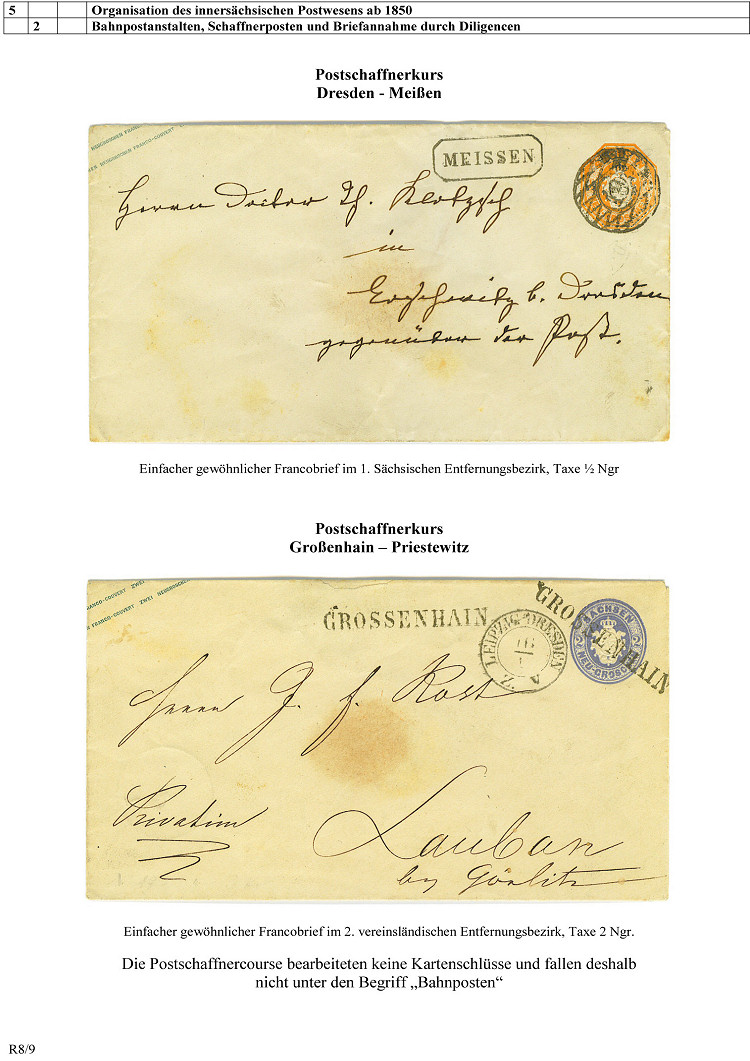 5 Organisation des innersächsischen Postwesens ab 1850
2 Bahnpostanstalten, Schaffnerposten und Briefannahme durch Diligencen
Postschaffnerkurs
Dresden - Meißen
MEISSEN
Herrn Doctor Th. Klotzsch
in
b. Dresden
gegenüber der Post.
Einfacher gewöhnlicher Francobrief im 1. Sächsischen Entfernungsbezirk, Taxe ½ Ngr
Postschaffnerkurs
Großenhain – Priestewitz
GROSSENHAIN
GROSSENHAIN
SACHSEN
NEU-GROSCH
LEIPZIG-DRESDEN
Z. A
Herrn J. F. Rost
Privatim
Lauban
by Görlitz
Einfacher gewöhnlicher Francobrief im 2. vereinsländischen Entfernungsbezirk, Taxe 2 Ngr.
Die Postschaffnercourse bearbeiteten keine Kartenschlüsse und fallen deshalb
nicht unter den Begriff „Bahnposten“
R8/9